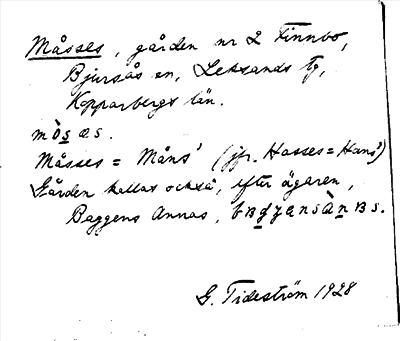 Måsses, gården nr 2 Finnbo,
Bjursås sn, Leksands tg,
Kopparbergs län.
mòsas.
Måsses = Måns' (jfr. Hasses = Hans')
Gården kallas också, efter ägaren,
Baggens Annas,
G. Tideström 1928